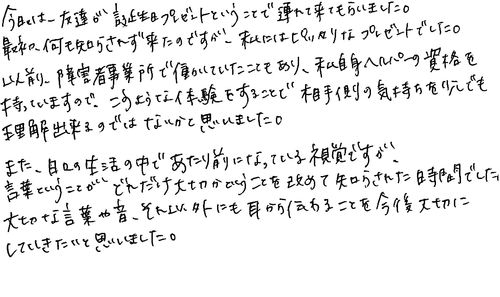 今日は、友達が誕生日プレゼントということで連れて来てもらいました。
最初、何も知らされず来たのですが、私にはピッタリなプレゼントでした。
以前、障害者事業所で働いていたこともあり、私自身ヘルパーの資格を
持っていますので、このような体験をすることで相手側の気持ちを少しでも
理解出来るのではないかと思いました。
また、日々の生活の中であたり前になっている視覚ですが、
言葉ということがどれだけ大切かということを改めて知らされた時間でした
大切な言葉や音、それ以外にも耳から伝わることを今後大切に
していきたいと思いました。